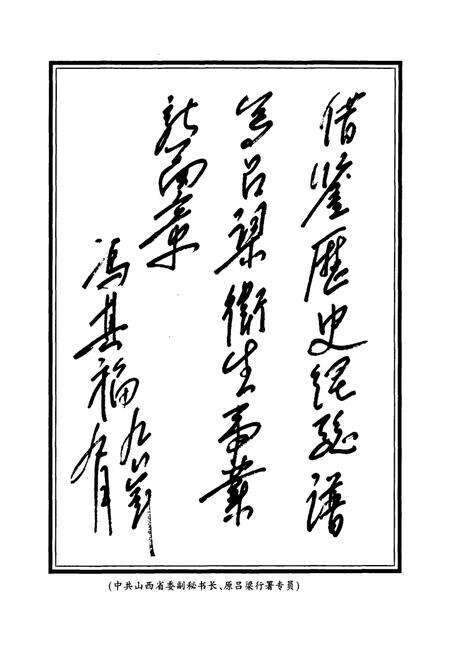 借鑒歷史经验谱
写吕梁衛生事業
新篇章
冯其福
九月
(中共山西省委副秘书长、原吕梁行署专员)